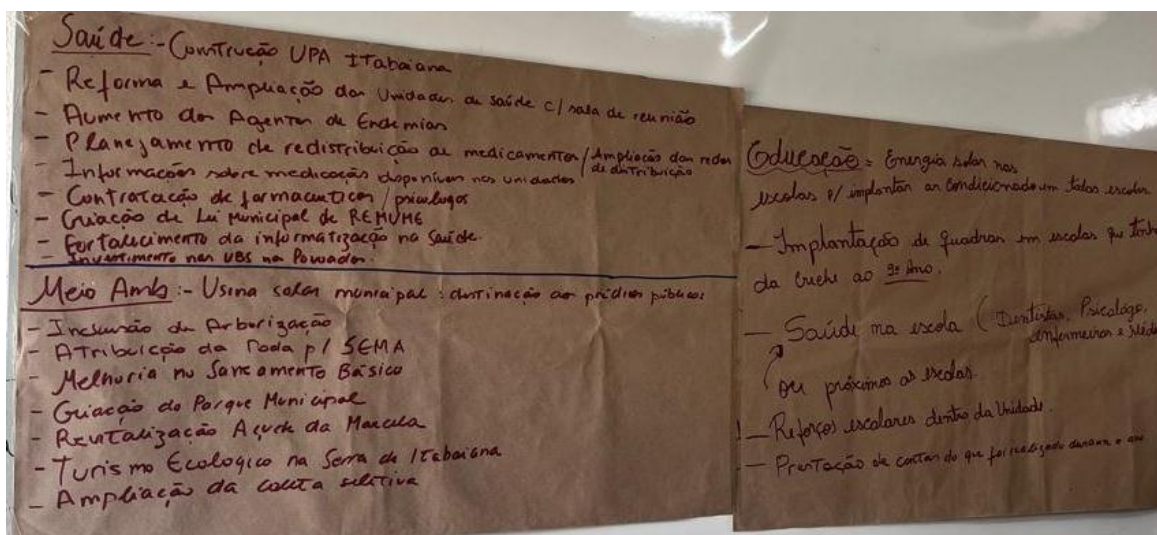 Saúde:- Construção UPA Itabaiana
- Reforma e Ampliação das Unidades de saúde c/ sala de reunião
- Aumento dos Agentes de Endemias
- Planejamento de redistribuição de medicamentos / Ampliação das redes de distribuição
- Informações sobre medicação disponíveis nas unidades
- Contratação de farmaceuticos / psicologos
- Criação de Lei Municipal de REMUME
- Fortalecimento da informatização na Saúde.
- Investimento nas UBS na Povoados.
Meio Amb:- Usina solar municipal: destinação ao prédios públicos
- Inclusão de Arborização
- Atribuição da Poda p/ SEMA
- Melhoria no Saneamento Básico
- Criação do Parque Municipal
- Revitalização Açude da Marcela
- Turismo Ecologico na Serra de Itabaiana
- Ampliação da coleta seletiva
Educação = Energia solar nas
escolas p/ implantar ar condicionado em todas escolas
- Implantação de quadras em escolas que tenha
da Creche ao 9º Ano.
- Saúde na escola (Dentistas, Psicológo,
enfermeiros e
ou próximos as escolas.
- Reforços escolares dentro da Unidade.
- Prestação de contas do que foi realizado durante o ano